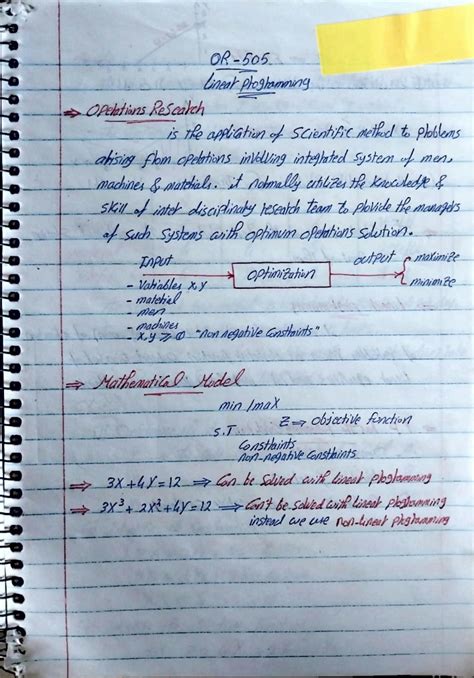 OR-505
Linear programming
⇒ Operations Research
is the application of scientific method to problems
arising from operations involving integrated system of men,
machines & materials. it normally utilizes the knowledge &
skill of inter disciplinary research team to provide the managers
of such systems with optimum operations solution.
INPUT → optimization → output { maximize
minimize
- Variables X,Y
- material
- men
- machines
- X,Y ≥ 0 "non negative Constraints"
⇒ Mathematical Model
min / max
Z ⇒ objective function
S.T
Constraints
non-negative Constraints
⇒ 3X+4Y=12 ⇒ Can be solved with linear programming
⇒ 3X³+2X²+4Y=12 ⇒ Can't be solved with linear programming
instead we use non-linear programming